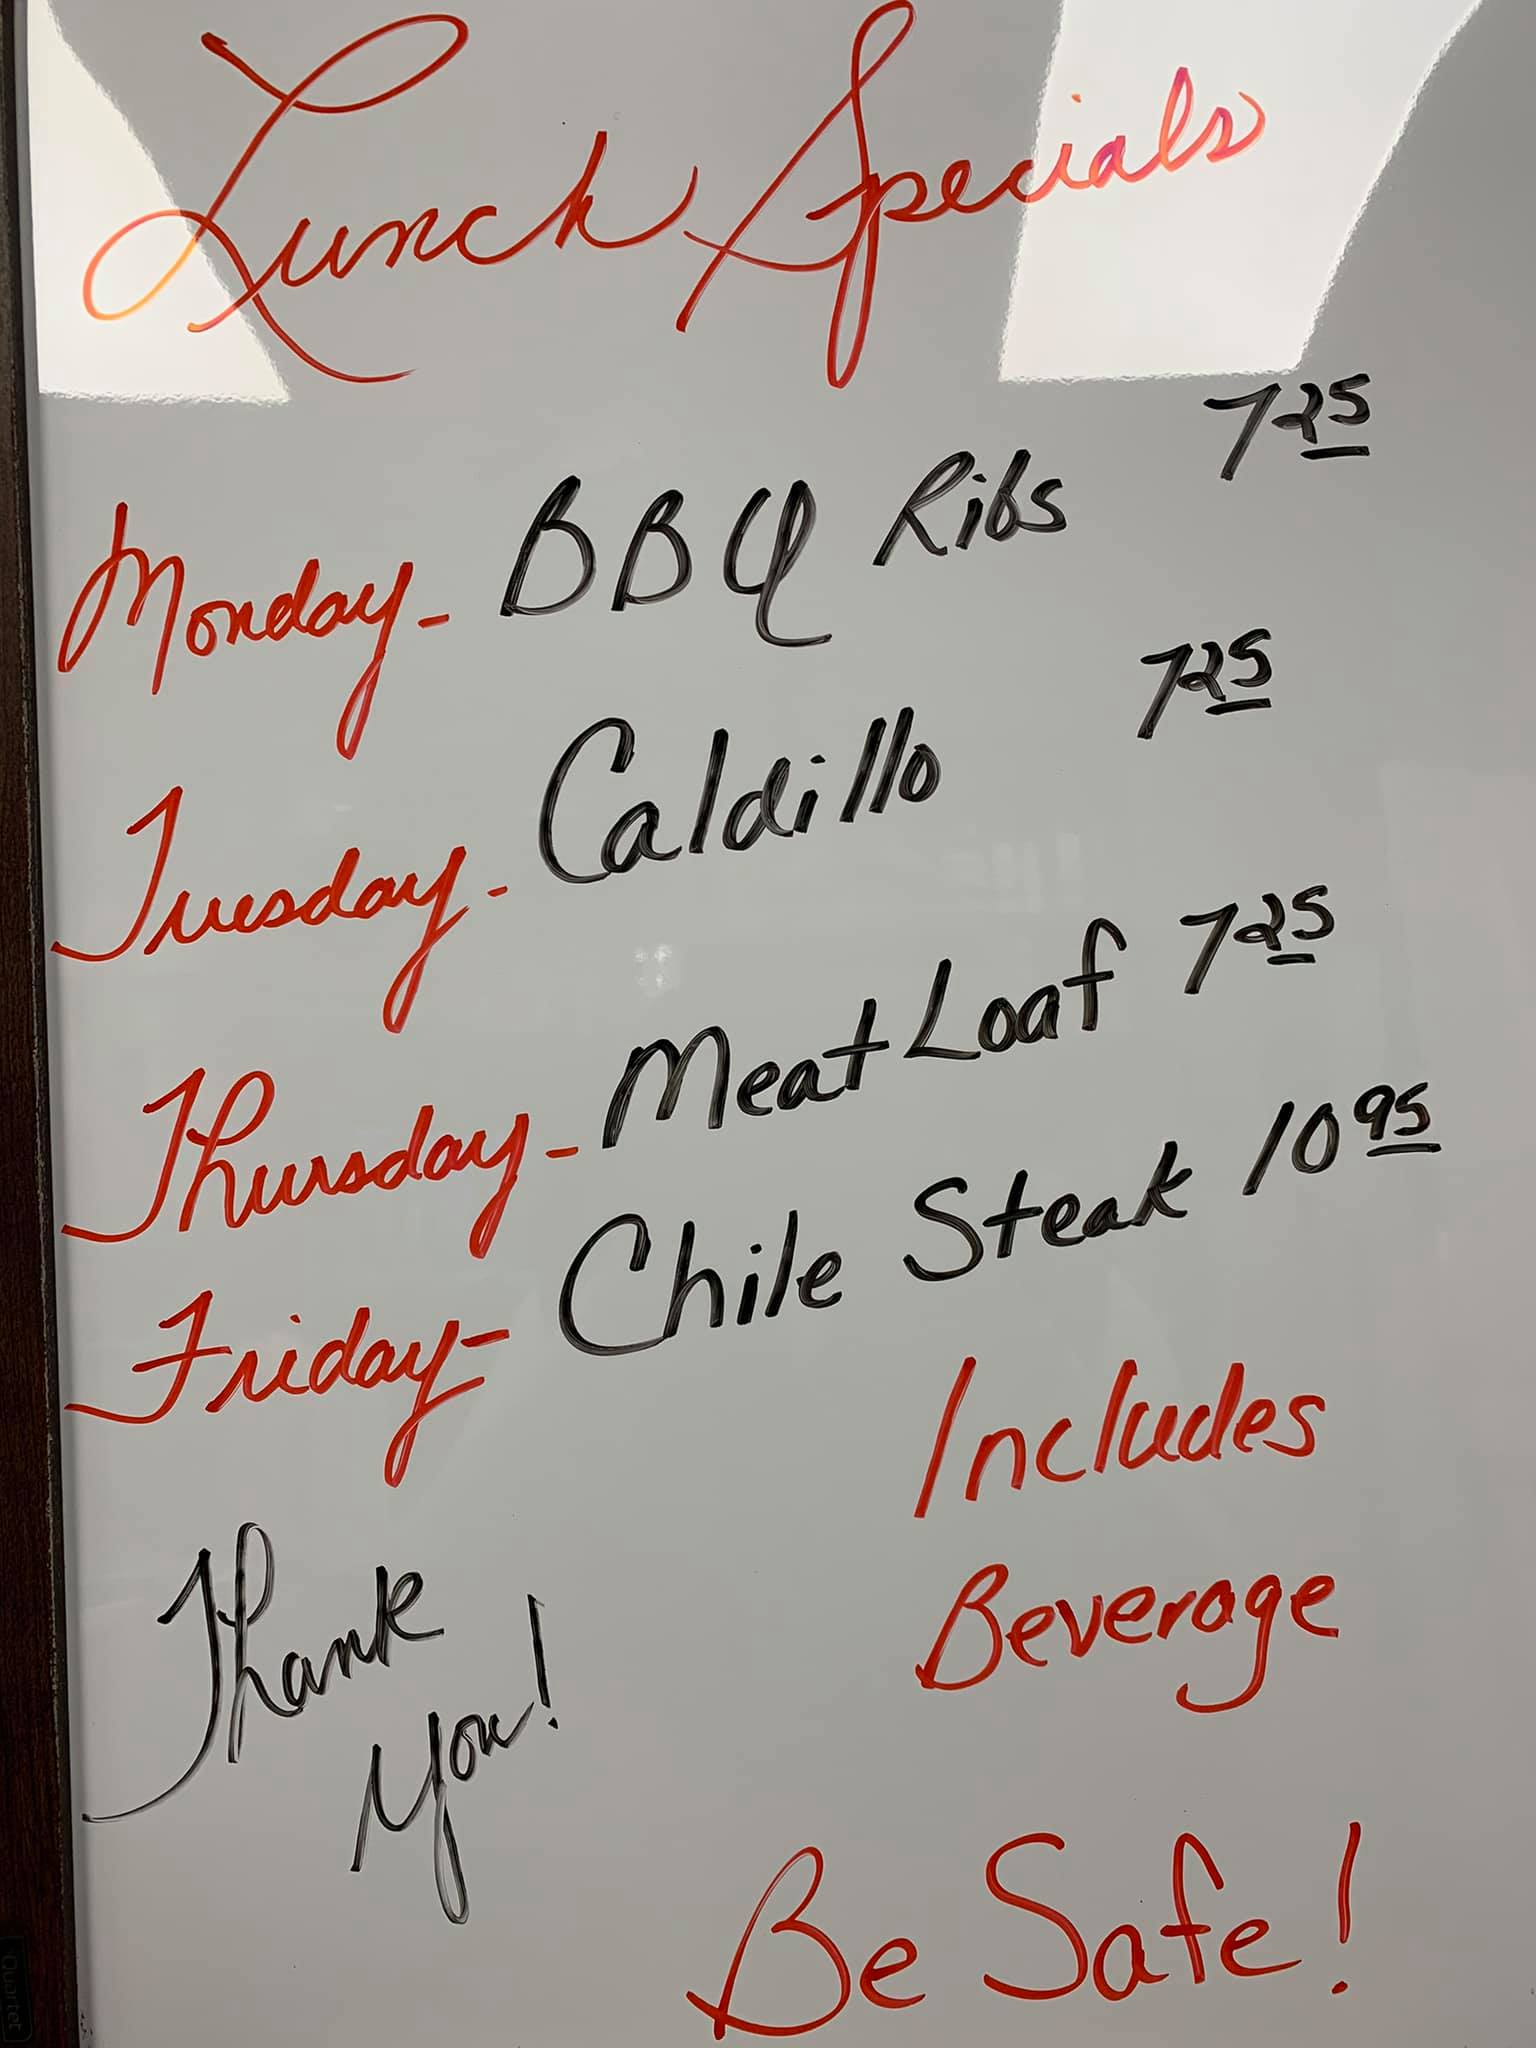 Lunch Specials
Monday- BBQ Ribs 7 25
Tuesday- Caldillo 7 25
Thursday- Meat Loaf 7 25
Friday- Chile Steak 10 95
Includes
Beverage
Thank
you!
Be Safe!
Quartet